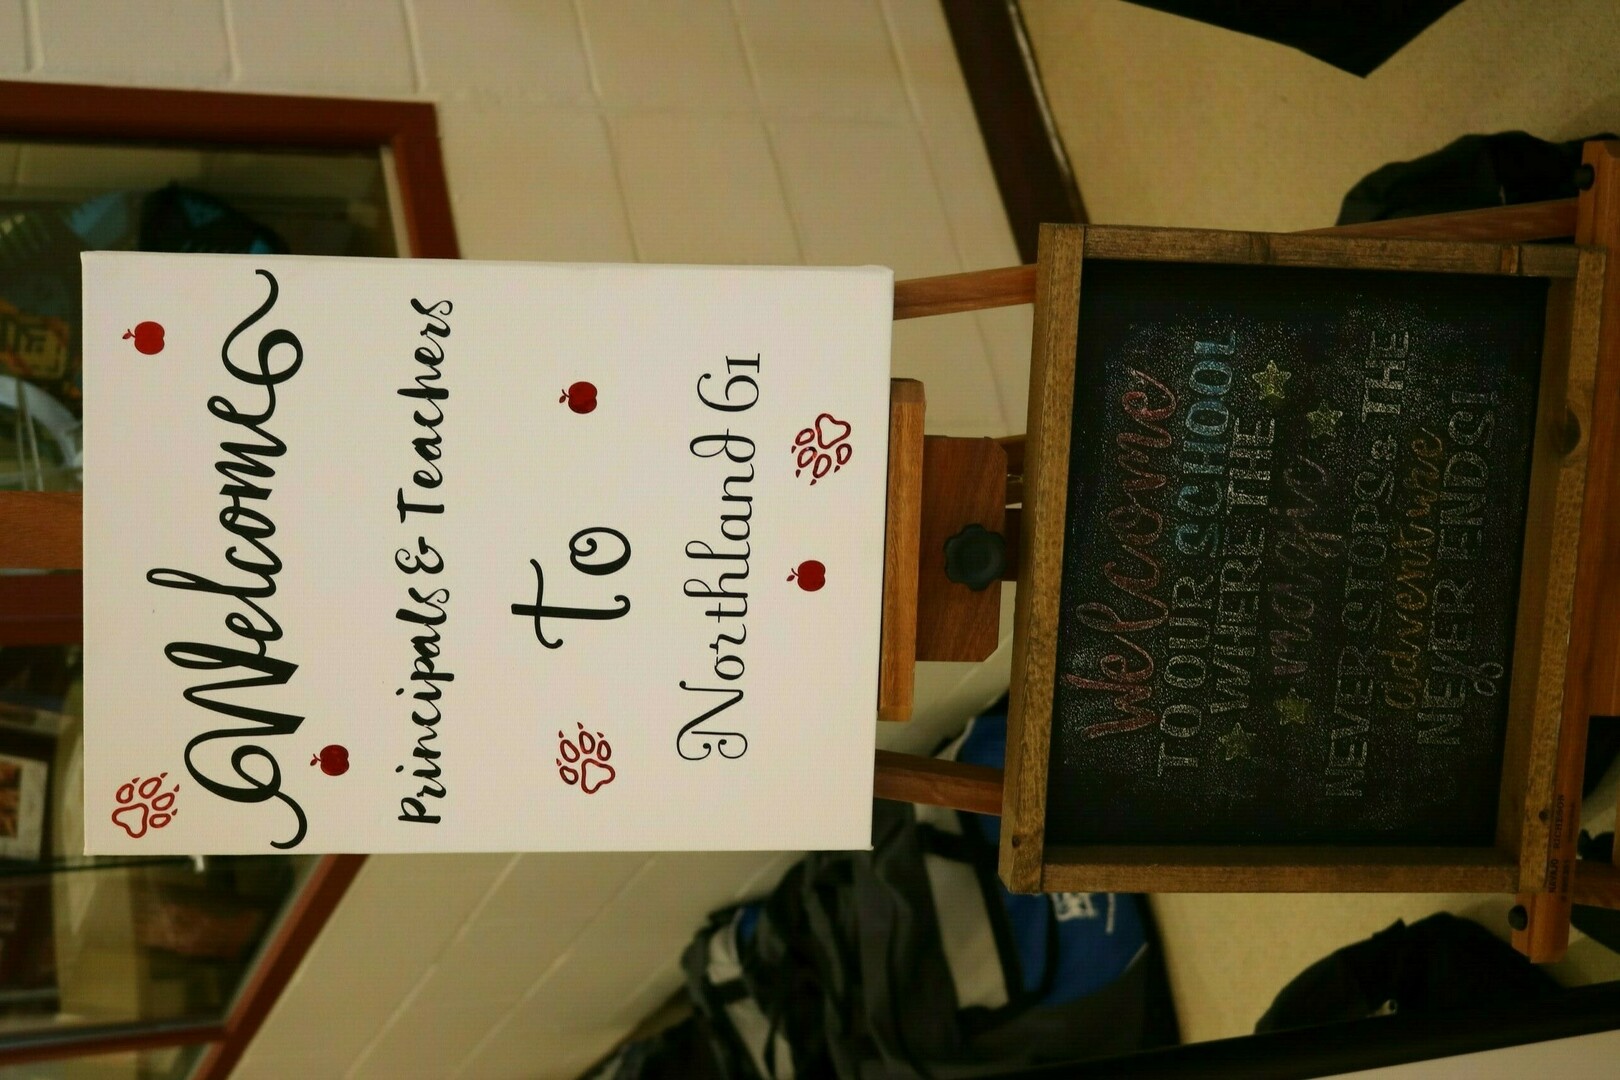 Welcome
Principals & Teachers
to
Northland 61
Welcome
TO OUR SCHOOL
WHERE THE
magic
NEVER STOPS & THE
adventure
NEVER ENDS!